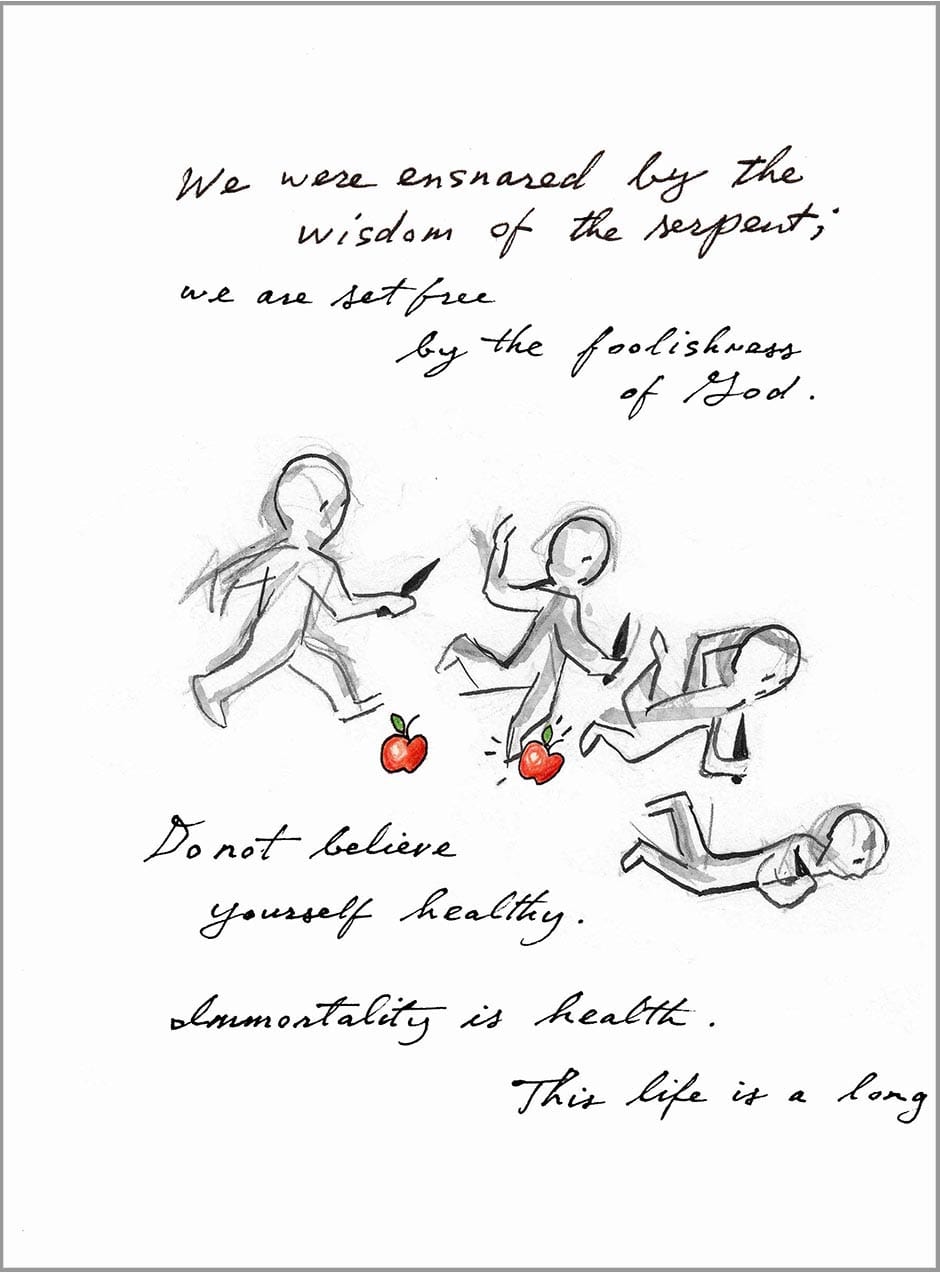 We were ensnared by the
wisdom of the serpent;
we are set free
by the foolishness
of God.
Do not believe
yourself healthy.
Immortality is health.
This life is a long